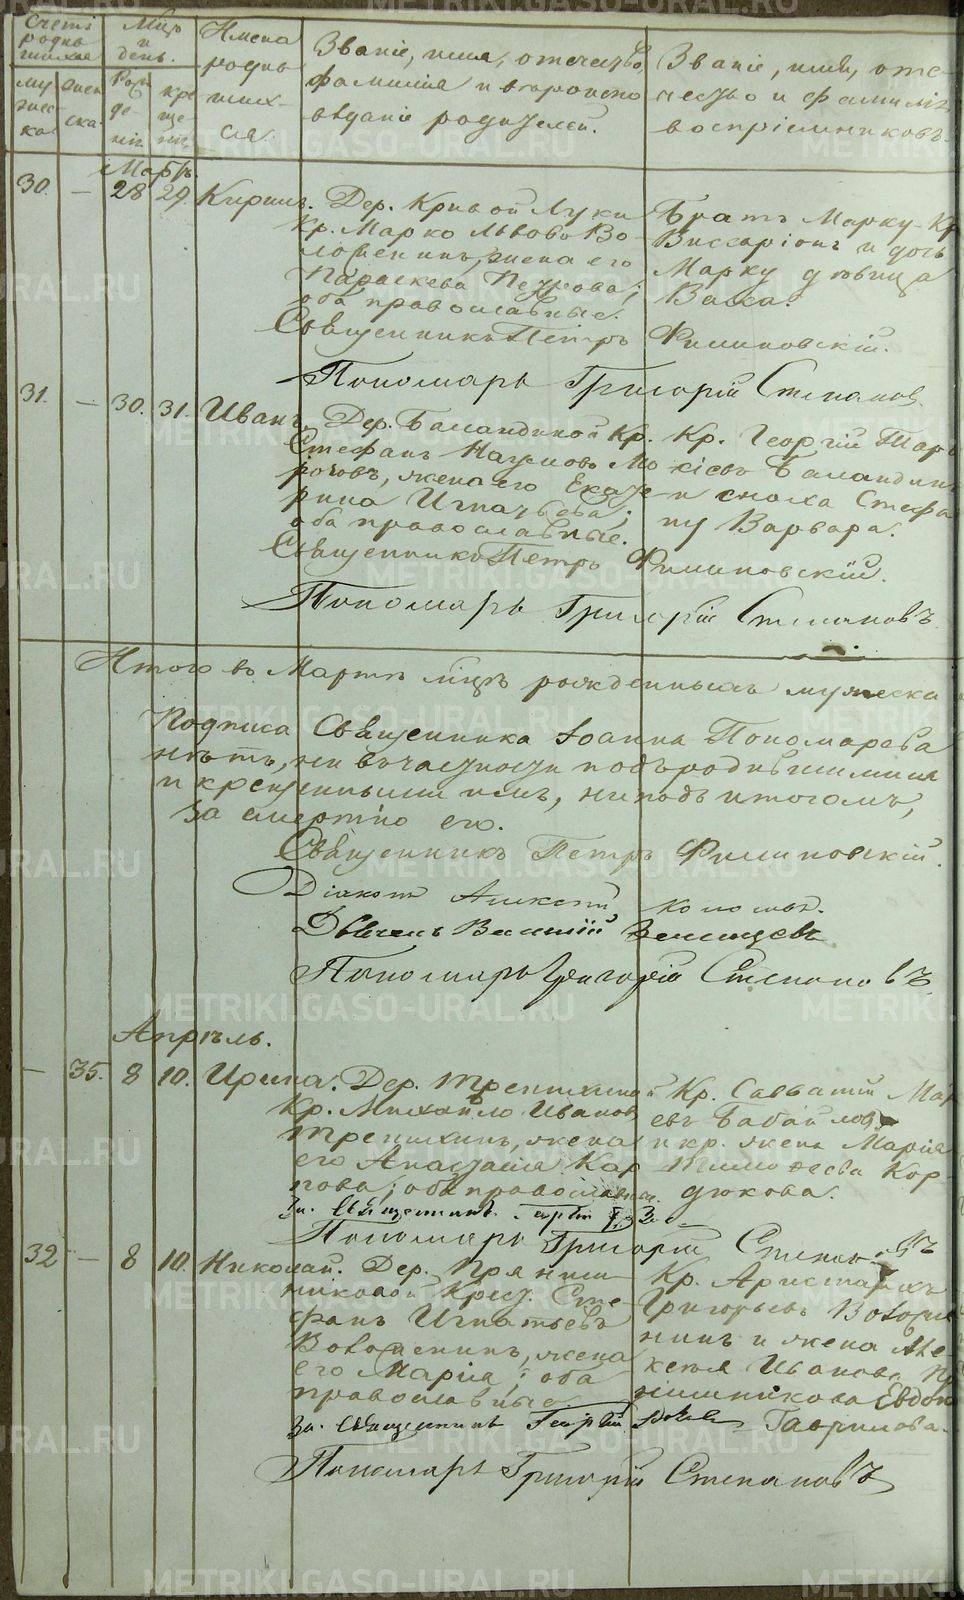 Счетъ родившихся
Мцъ и день.
Имена родившихся
Званіе, имя, отчество, фамилія и вероисповѣданіе родителей.
Званіе, имя, отчество и фамилія воспріемниковъ.
мужеска
женска.
Рожденія
крещенія
Мартъ.
30. — 28 29. Кириллъ. Дер. Кривой Луки
Кр. Марко Львовъ Во-
ложенинъ, жена его
Параскева Петрова;
оба православные.
Братъ Марку Кр
Виссаріонъ и дочь
Марку дѣвица
Васса.
Священникъ Петръ Филиповскій.
Пономарь Григорій Степановъ.
31. — 30. 31. Иванъ. Дер. Баландиной Кр.
Стефанъ Наумовъ Мо
роговъ, жена его Екате-
рина Игнатьева;
оба православные.
Кр. Георгій
Баландинъ
и сноха Стефа
ну Варвара.
Священникъ Петръ Филиповскій.
Пономарь Григорій Степановъ
Итого въ Мартѣ мцѣ рожденныхъ мужеска
Подписа Священника Іоанна Пономарева
нѣтъ, ни въ частности подъ родившимися
и крещенными имъ, ни подъ итогомъ,
за смертію его.
Священникъ Петръ Филиповскій.
Діаконъ Алексѣй
Дьячекъ Василій
Пономарь Григорій Степановъ
Апрѣль.
— 35. 8 10. Ирина. Дер. Трепихиной
Кр. Михайло Ивановъ
Трепихинъ, жена
его Анастасія Кар
пова; оба православные.
Кр. Савватій Мар
евъ Бабайловъ
и кр. жена Марія
Тимофеева Кор-
дюкова.
За. Священникъ
Пономарь Григорій Степановъ
32 — 8 10. Николай. Дер. Пряниш-
никовой Крест. Сте-
фанъ Игнатьевъ
Воложенинъ, жена
его Марія; оба
православные
Кр. Аристархъ
Григорьевъ Воложе
нинъ и жена Але-
ксѣя Иванова Пр
нишникова Евдок
Гаврилова.
За. Священникъ Георгій
Пономарь Григорій Степановъ
METRIKI.GASO-URAL.RU